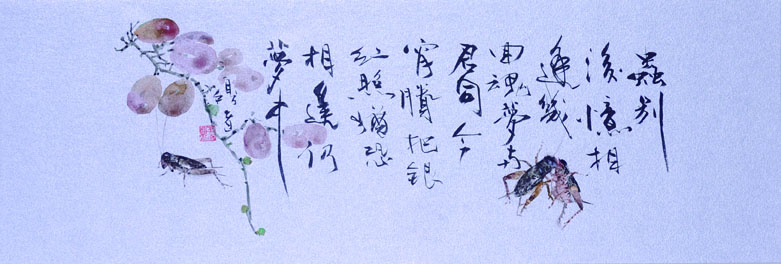 蟲別
後憶相
逢幾
回魂夢與
君同今
宵賸把銀
紅照猶恐
相逢仍
夢中